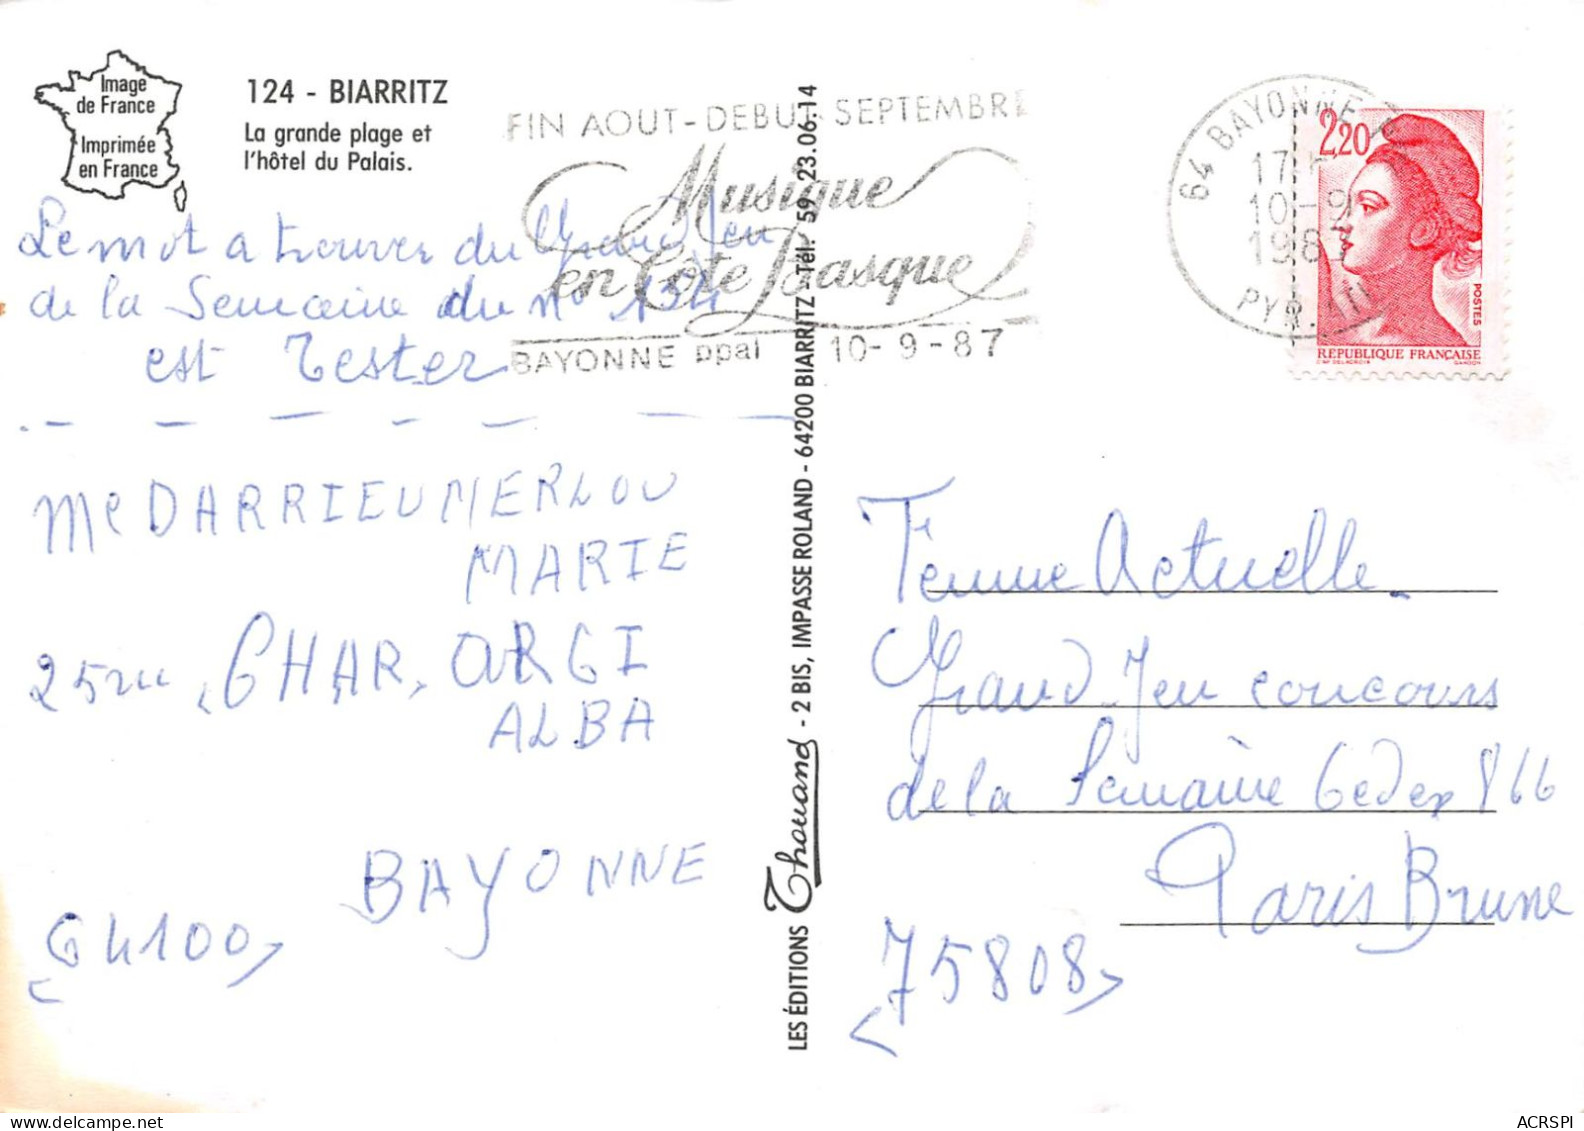 Image
de France
Imprimée
en France
124 - BIARRITZ
La grande plage et
l'hôtel du Palais.
FIN AOUT-DEBUT SEPTEMBRE
Musique
en Côte Basque
BAYONNE ppal 10-9-87
64 BAYONNE
10-9
PYR.
2,20
POSTES
REPUBLIQUE FRANÇAISE
Le mot a trouver du Grand Jeu
de la Semaine du n° 154
est Tester
Me DARRIEUMERLOU
MARIE
25 rue CHAR. ORGI
ALBA
BAYONNE
64100
LES ÉDITIONS Thouand - 2 BIS, IMPASSE ROLAND - 64200 BIARRITZ - Tél. 59. 23.06.14
Femme Actuelle
Grand Jeu concours
de la Semaine Cedex 866
Paris Brune
75808
ACRSPI